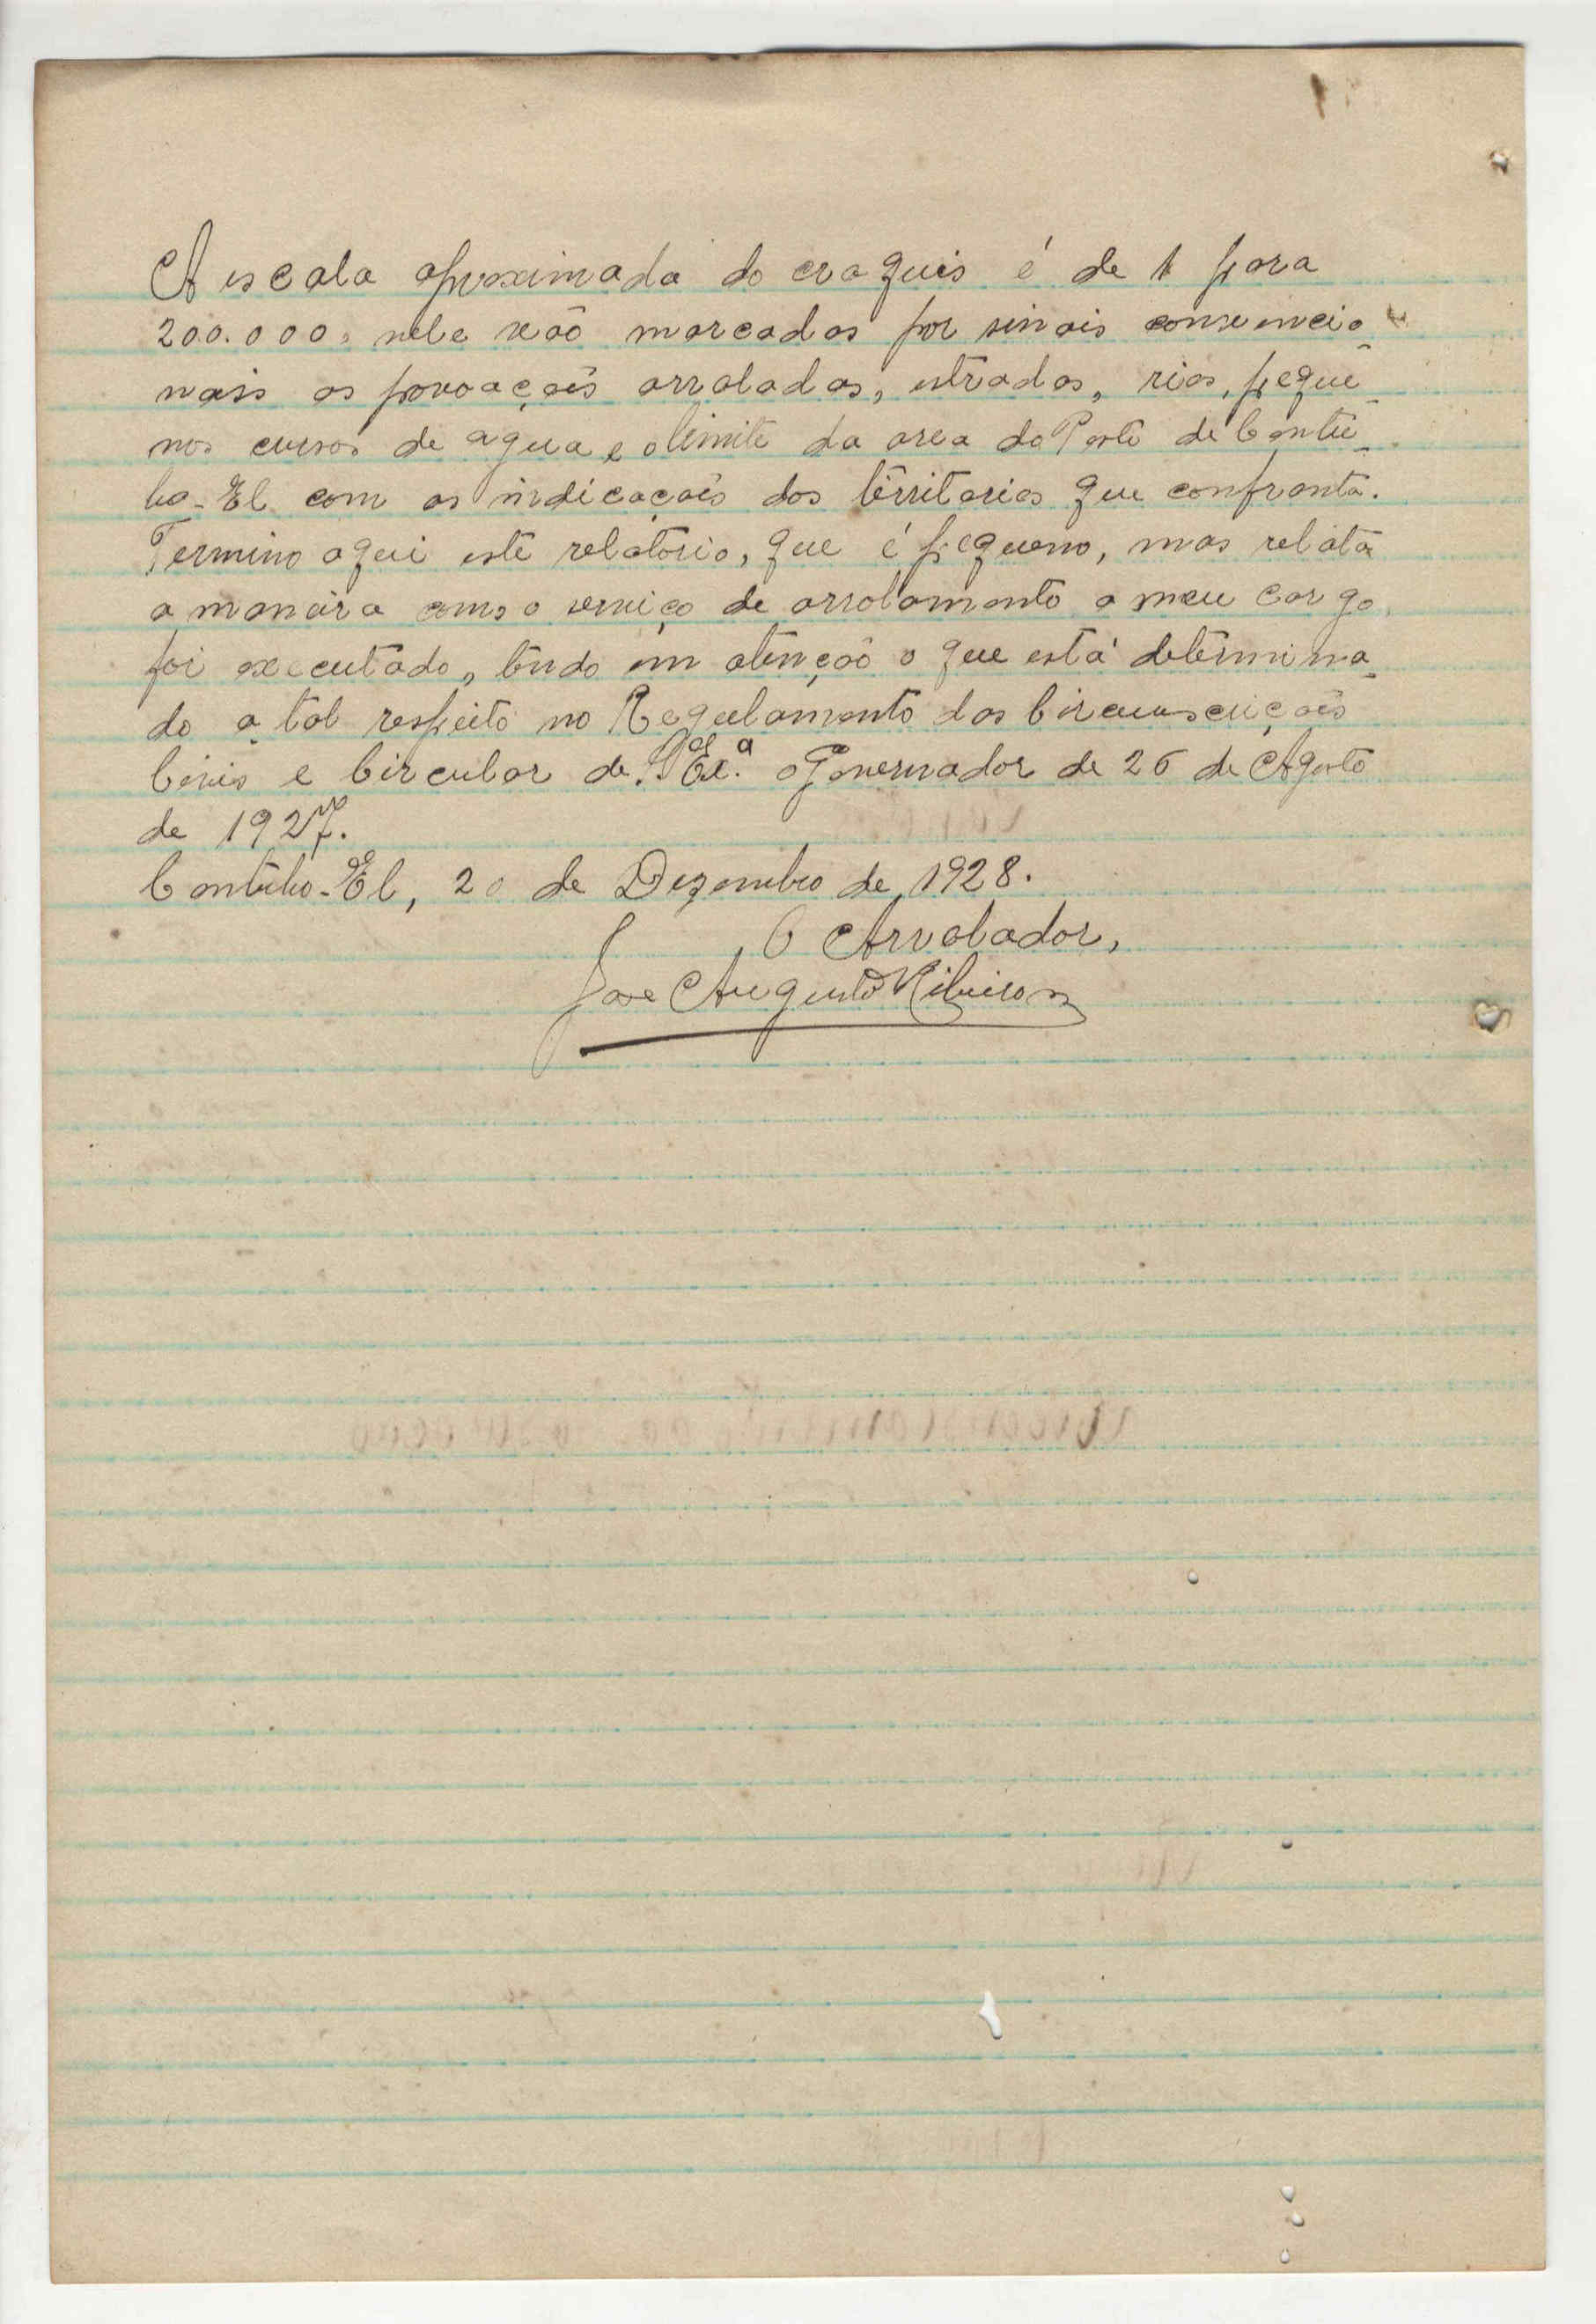 A escala aproximada do craquis é de 1 para
200.000, nele vão marcadas por sinais convencio
nais as povoaçoẽs arroladas, estradas, rios, peque_
nos cursos de agua e o limite da area do Posto de Contu_
bo-El com as indicaçoẽs dos territorios que confronta.
Termino aqui este relatório, que é pequeno, mas relata
a maneira como o serviço de arrolamento a meu cargo,
foi executado, tendo em atenção o que está determina_
do a tal respeito no Regulamento das Circunscriçoẽs
Civis e Circular de S. Exª. o Governador de 26 de Agosto
de 1927.
Contubo-El, 20 de Dezembro de 1928.
O Arrolador,
José Augusto Ribeiro